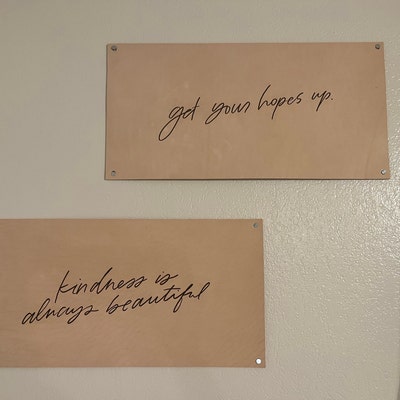 get your hopes up.
kindness is
always beautiful